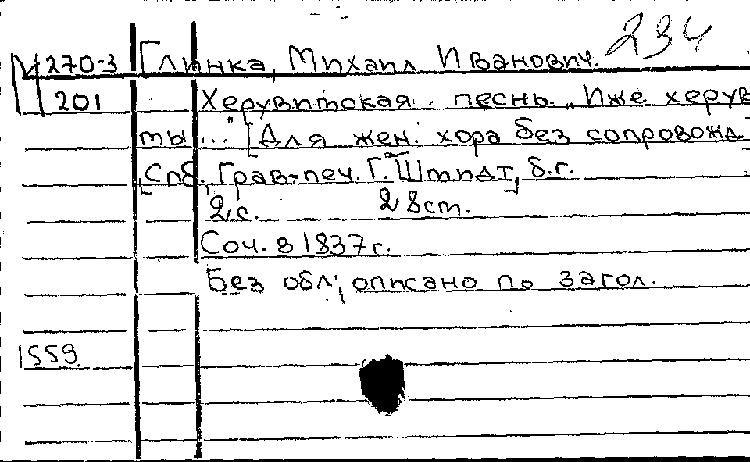 234
М270:3 Глинка, Михаил Иванович.
201 Херувимская песнь "Иже херув
мы..." [Для жен. хора без сопровожд
[Спб., Грав-печ. Г. Шмидт], б.г.
2 с. 28 ст.
Соч. в 1837 г.
Без обл.; описано по загол.
1559